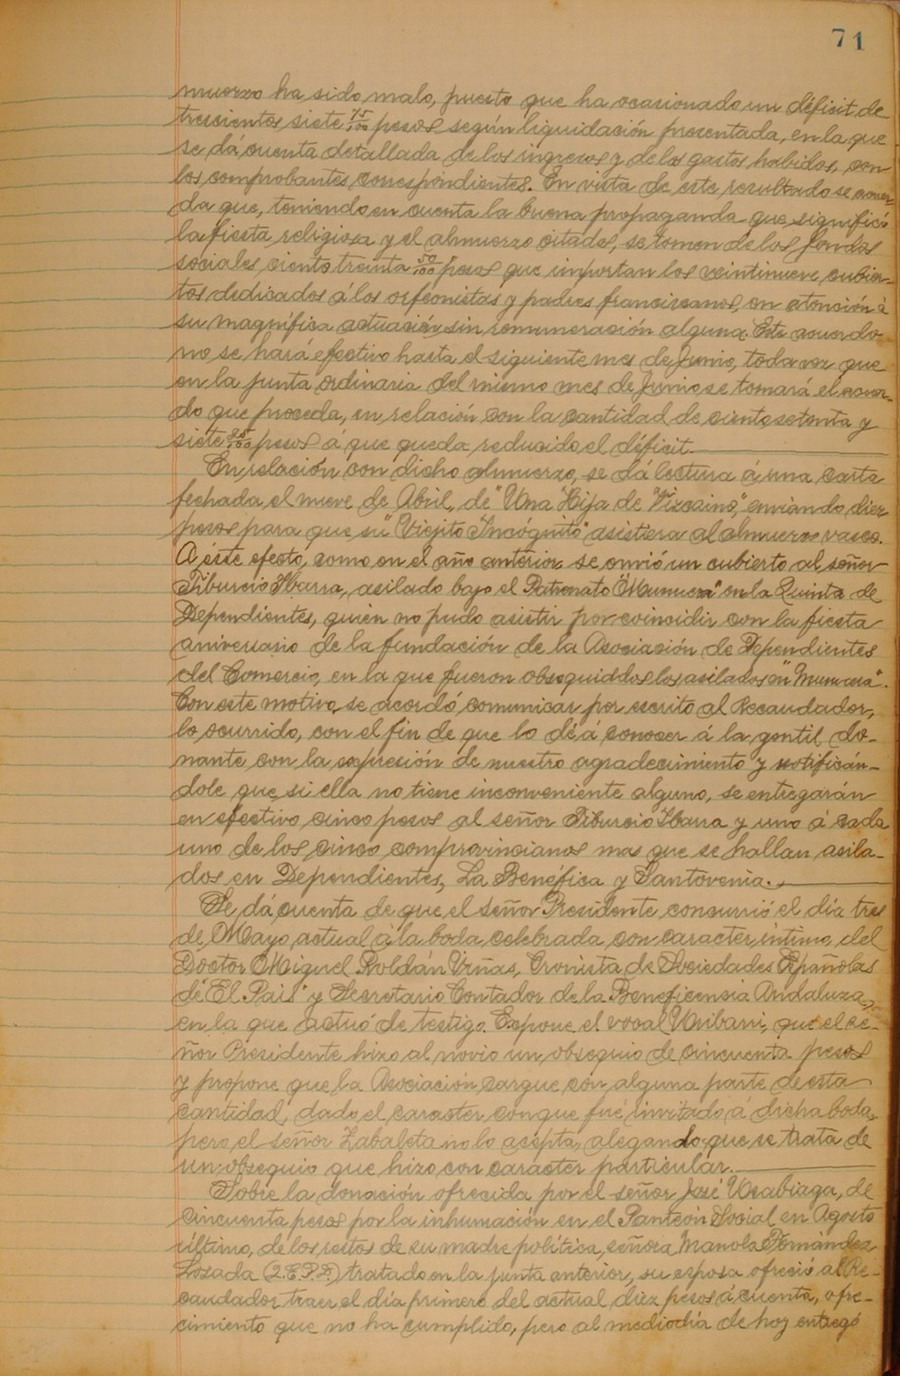 71
muerzo ha sido malo, puesto que ha ocasionado un déficit de
trescientos siete 75/100 pesos según liquidación presentada, en la que
se dá cuenta detallada de los ingresos y de los gastos habidos, con
los comprobantes correspondientes. En vista de este resultado se acuer-
da que, teniendo en cuenta la buena propaganda que significó
la fiesta religiosa y el almuerzo citados, se tomen de los fondos
sociales ciento treinta 50/100 pesos que importan los veintinueve cubier-
tos dedicados á los orfeonistas y padres franciscanos, en atención á
su magnífica actuación sin remuneración alguna. Este acuerdo
no se hará efectivo hasta el siguiente mes de Junio, toda vez que
en la junta ordinaria del mismo mes de Junio se tomará el acuer-
do que proceda, en relación con la cantidad de ciento setenta y
siete 25/100 pesos á que queda reducido el déficit.
En relación con dicho almuerzo, se dá lectura á una carta
fechada el nueve de Abril, de "Una Hija de Vizcaino", enviando diez
pesos para que su "Viejito Incógnito" asistiera al almuerzo vasco.
A ésse efecto, como en el año anterior se envió un cubierto al señor
Tiburcio Ibarra, asilado bajo el Patronato "Mumuera" en la Quinta de
Dependientes, quien no pudo asistir por coincidir con la fiesta
aniversario de la fundación de la Asociación de Dependientes
del Comercio, en la que fueron obsequiados los asilados en "Mumuera".
Con este motivo, se acordó comunicar por escrito al Recaudador,
lo ocurrido, con el fin de que lo dé á conocer á la gentil do-
nante con la expresión de nuestro agradecimiento y notificán-
dole que si ella no tiene inconveniente alguno, se entregarán
en efectivo cinco pesos al señor Tiburcio Ibarra y uno á cada
uno de los cinco comprovincianos mas que se hallan asila-
dos en Dependientes, La Benéfica y Santovenia.
Se dá cuenta de que el señor Presidente concurrió el día tres
de Mayo actual á la boda, celebrada con caracter íntimo, del
Doctor Miguel Roldán Viñas, Cronista de Sociedades Españolas
de "El Pais" y Secretario Contador de la Beneficensia Andaluza,
en la que actuó de testigo. Expone el vocal Uribarri, que el se-
ñor Presidente hizo al novio un obsequio de cincuenta pesos
y propone que la Asociación cargue con alguna parte de esta
cantidad, dado el caracter conque fué invitado á dicha boda,
pero el señor Zabaleta no lo acepta, alegando que se trata de
un obsequio que hizo con caracter particular.
Sobre la donación ofrecida por el señor José Usabiaga, de
cincuenta pesos por la inhumación en el Panteón Social en Agosto
último, de los restos de su madre política, señora Manola Fernández
Lozada (Q.E.P.D.) tratado en la junta anterior, su esposa ofreció al Re-
caudador traer el día primero del actual diez pesos á cuenta, ofre-
cimiento que no ha cumplido, pero al mediodia de hoy entregó